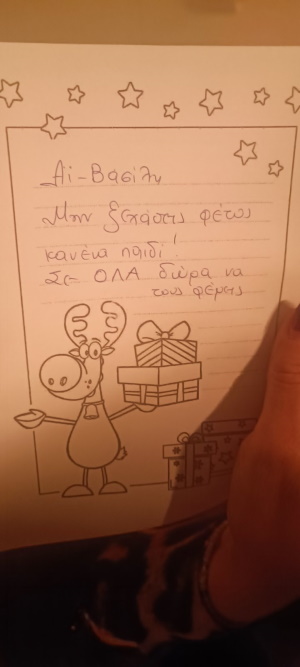 Αϊ-Βασίλη
Μην ξεχάσεις φέτος
κανένα παιδί!
Σε ΟΛΑ δώρα να
τους φέρεις